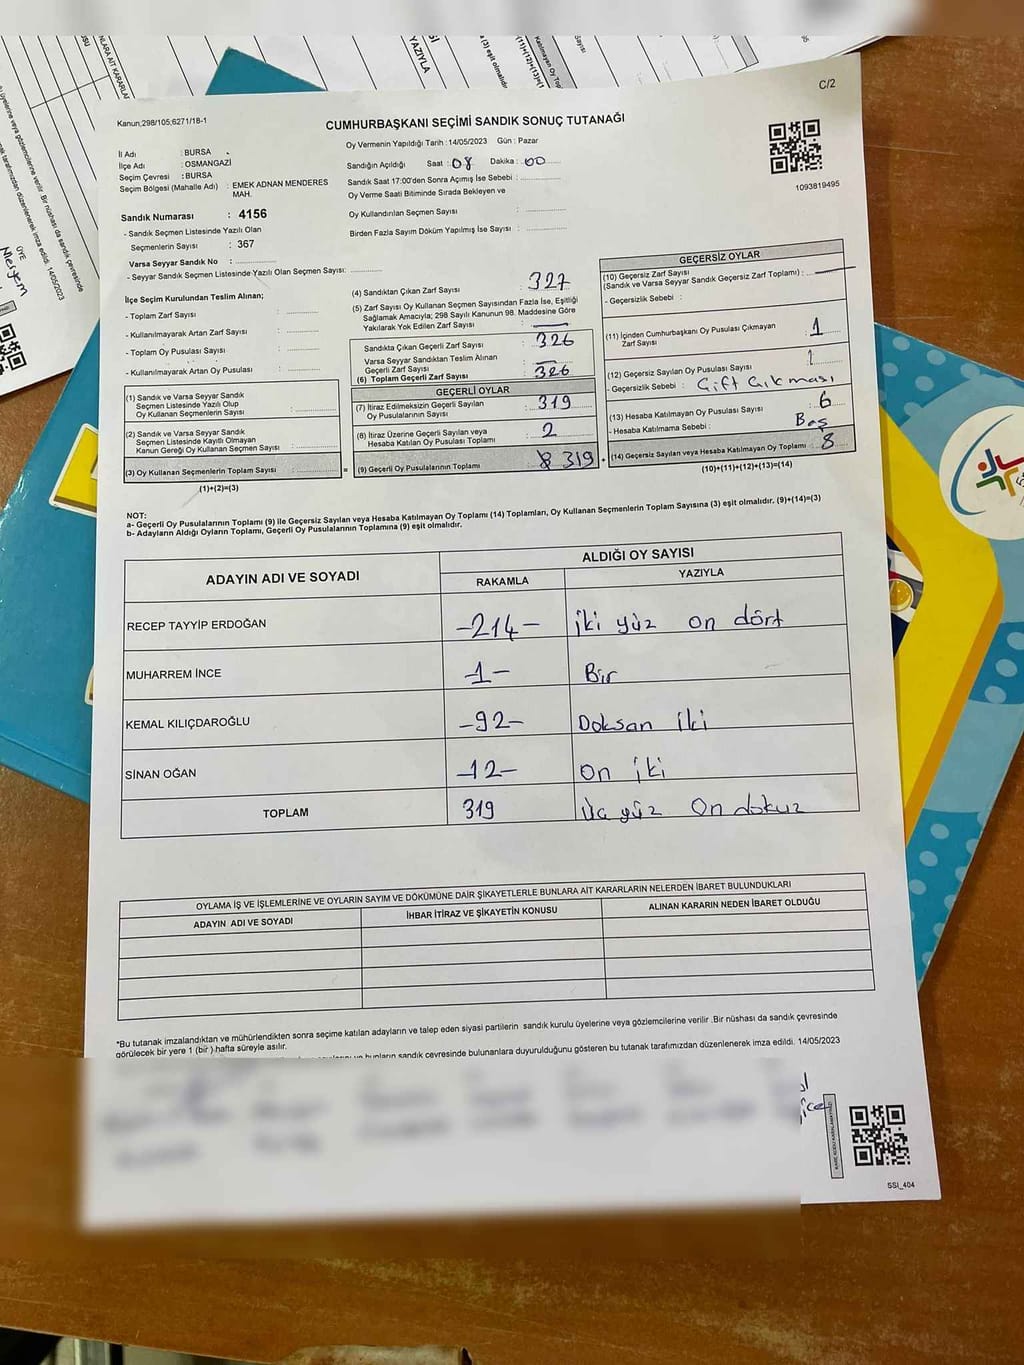 C/2
Kanun;298/105;6271/18-1
CUMHURBAŞKANI SEÇİMİ SANDIK SONUÇ TUTANAĞI
İl Adı : BURSA
İlçe Adı : OSMANGAZİ
Seçim Çevresi : BURSA
Seçim Bölgesi (Mahalle Adı) : EMEK ADNAN MENDERES MAH.
Sandık Numarası : 4156
- Sandık Seçmen Listesinde Yazılı Olan
Seçmenlerin Sayısı : 367
Varsa Seyyar Sandık No :
- Seyyar Sandık Seçmen Listesinde Yazılı Olan Seçmen Sayısı:
Oy Vermenin Yapıldığı Tarih : 14/05/2023 Gün : Pazar
Sandığın Açıldığı Saat : 08 Dakika : 00
Sandık Saat 17:00'den Sonra Açımış İse Sebebi :
Oy Verme Saati Bitiminde Sırada Bekleyen ve
Oy Kullandırılan Seçmen Sayısı :
Birden Fazla Sayım Döküm Yapılmış İse Sayısı :
1093819495
İlçe Seçim Kurulundan Teslim Alınan;
- Toplam Zarf Sayısı :
- Kullanılmayarak Artan Zarf Sayısı :
- Toplam Oy Pusulası Sayısı :
- Kullanılmayarak Artan Oy Pusulası :
(1) Sandık ve Varsa Seyyar Sandık
Seçmen Listesinde Yazılı Olup
Oy Kullanan Seçmenlerin Sayısı :
(2) Sandık ve Varsa Seyyar Sandık
Seçmen Listesinde Kayıtlı Olmayan
Kanun Gereği Oy Kullanan Seçmen Sayısı :
(3) Oy Kullanan Seçmenlerin Toplam Sayısı :
(1)+(2)=(3)
(4) Sandıktan Çıkan Zarf Sayısı : 327
(5) Zarf Sayısı Oy Kullanan Seçmen Sayısından Fazla İse, Eşitliği
Sağlamak Amacıyla; 298 Sayılı Kanunun 98. Maddesine Göre
Yakılarak Yok Edilen Zarf Sayısı :
Sandıkta Çıkan Geçerli Zarf Sayısı : 326
Varsa Seyyar Sandıktan Teslim Alınan
Geçerli Zarf Sayısı :
(6) Toplam Geçerli Zarf Sayısı : 326
GEÇERLİ OYLAR
(7) İtiraz Edilmeksizin Geçerli Sayılan
Oy Pusulalarının Sayısı : 319
(8) İtiraz Üzerine Geçerli Sayılan veya
Hesaba Katılan Oy Pusulası Toplamı : 2
= (9) Geçerli Oy Pusulalarının Toplamı : 319 +
GEÇERSİZ OYLAR
(10) Geçersiz Zarf Sayısı
(Sandık ve Varsa Seyyar Sandık Geçersiz Zarf Toplamı) :
- Geçersizlik Sebebi :
(11) İçinden Cumhurbaşkanı Oy Pusulası Çıkmayan
Zarf Sayısı : 1
(12) Geçersiz Sayılan Oy Pusulası Sayısı : 1
- Geçersizlik Sebebi : Çift Çıkması
(13) Hesaba Katılmayan Oy Pusulası Sayısı : 6
- Hesaba Katılmama Sebebi : Boş
(14) Geçersiz Sayılan veya Hesaba Katılmayan Oy Toplamı : 8
(10)+(11)+(12)+(13)=(14)
NOT:
a- Geçerli Oy Pusulalarının Toplamı (9) ile Geçersiz Sayılan veya Hesaba Katılmayan Oy Toplamı (14) Toplamları, Oy Kullanan Seçmenlerin Toplam Sayısına (3) eşit olmalıdır. (9)+(14)=(3)
b- Adayların Aldığı Oyların Toplamı, Geçerli Oy Pusulalarının Toplamına (9) eşit olmalıdır.
ADAYIN ADI VE SOYADI
ALDIĞI OY SAYISI
RAKAMLA YAZIYLA
RECEP TAYYİP ERDOĞAN -214- iki yüz on dört
MUHARREM İNCE -1- Bir
KEMAL KILIÇDAROĞLU -92- Doksan iki
SİNAN OĞAN -12- On iki
TOPLAM 319 Üç yüz On dokuz
OYLAMA İŞ VE İŞLEMLERİNE VE OYLARIN SAYIM VE DÖKÜMÜNE DAİR ŞİKAYETLERLE BUNLARA AİT KARARLARIN NELERDEN İBARET BULUNDUKLARI
ADAYIN ADI VE SOYADI İHBAR İTİRAZ VE ŞİKAYETİN KONUSU ALINAN KARARIN NEDEN İBARET OLDUĞU
*Bu tutanak imzalandıktan ve mühürlendikten sonra seçime katılan adayların ve talep eden siyasi partilerin sandık kurulu üyelerine veya gözlemcilerine verilir .Bir nüshası da sandık çevresinde
görülecek bir yere 1 (bir ) hafta süreyle asılır.
bunların sandık çevresinde bulunanlara duyurulduğunu gösteren bu tutanak tarafımızdan düzenlenerek imza edildi. 14/05/2023
SSI_404
YAZIYLA
ÜYE
Meryem